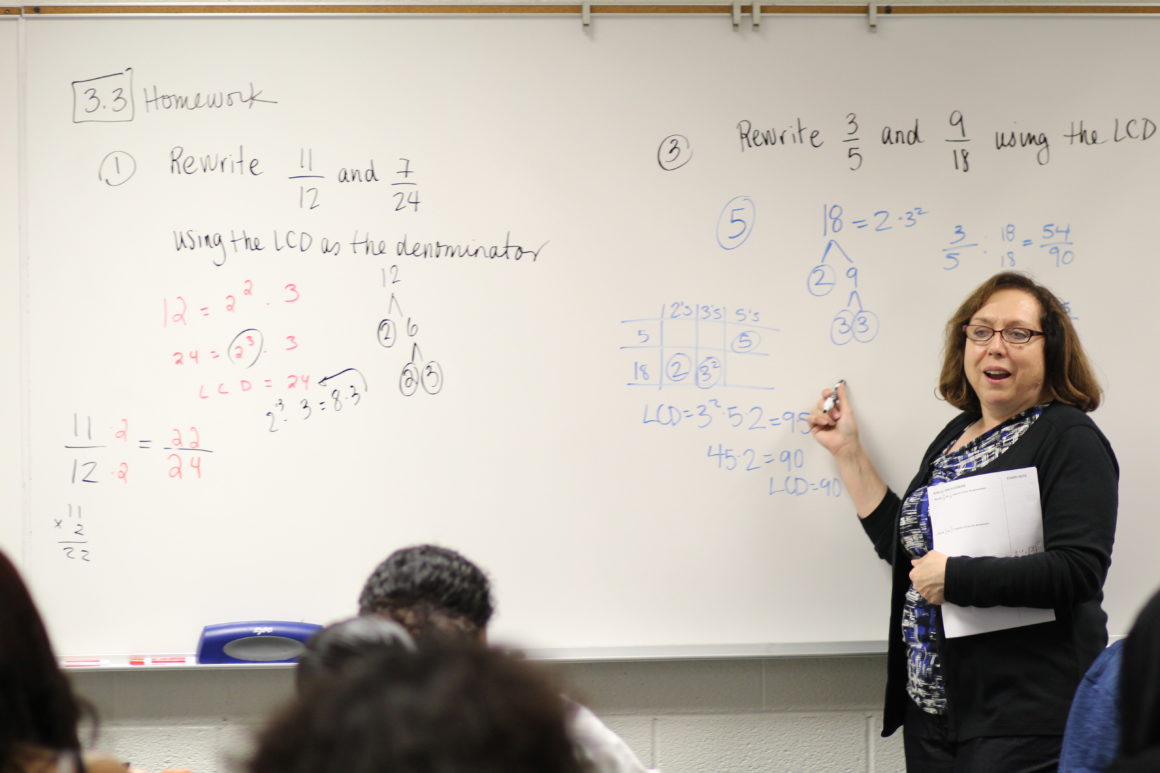 3.3 Homework
1 Rewrite 11/12 and 7/24
using the LCD as the denominator
12 = 2² · 3
24 = 2³ · 3
LCD = 24
2³ · 3 = 8·3
12
2 6
2 3
11/12 ·2/·2 = 22/24
11
× 2
22
3 Rewrite 3/5 and 9/18 using the LCD
5
18 = 2·3²
2 9
3 3
3/5 : 18/18 = 54/90
2's 3's 5's
5 5
18 2 3²
LCD = 3²·5·2 = 95
45·2 = 90
LCD = 90
expo